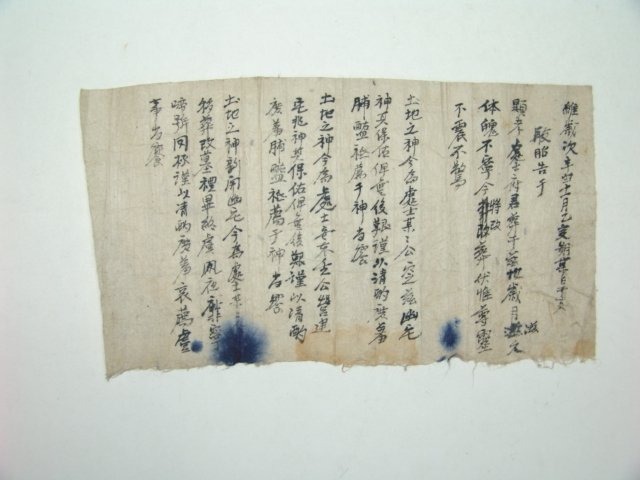 維歲次辛丑十一月乙亥朔某日干支
敢昭告于
顯考處士府君葬于宅地歲月滋久
體魄不寧今將改葬伏惟尊靈
不震不驚
土地之神今為處士某之公窆玆幽宅
神其保佑俾無後艱謹以清酌庶羞
脯醢祗薦于神尚饗
土地之神今為處士
宅兆神其保佑俾無後艱謹以清酌
庶羞脯醢祗薦于神尚饗
土地之神新開幽宅今為處士某
改葬改墓禮畢終虞夙夜靡寧
啼號罔極謹以清酌庶羞哀薦虞
事尚饗